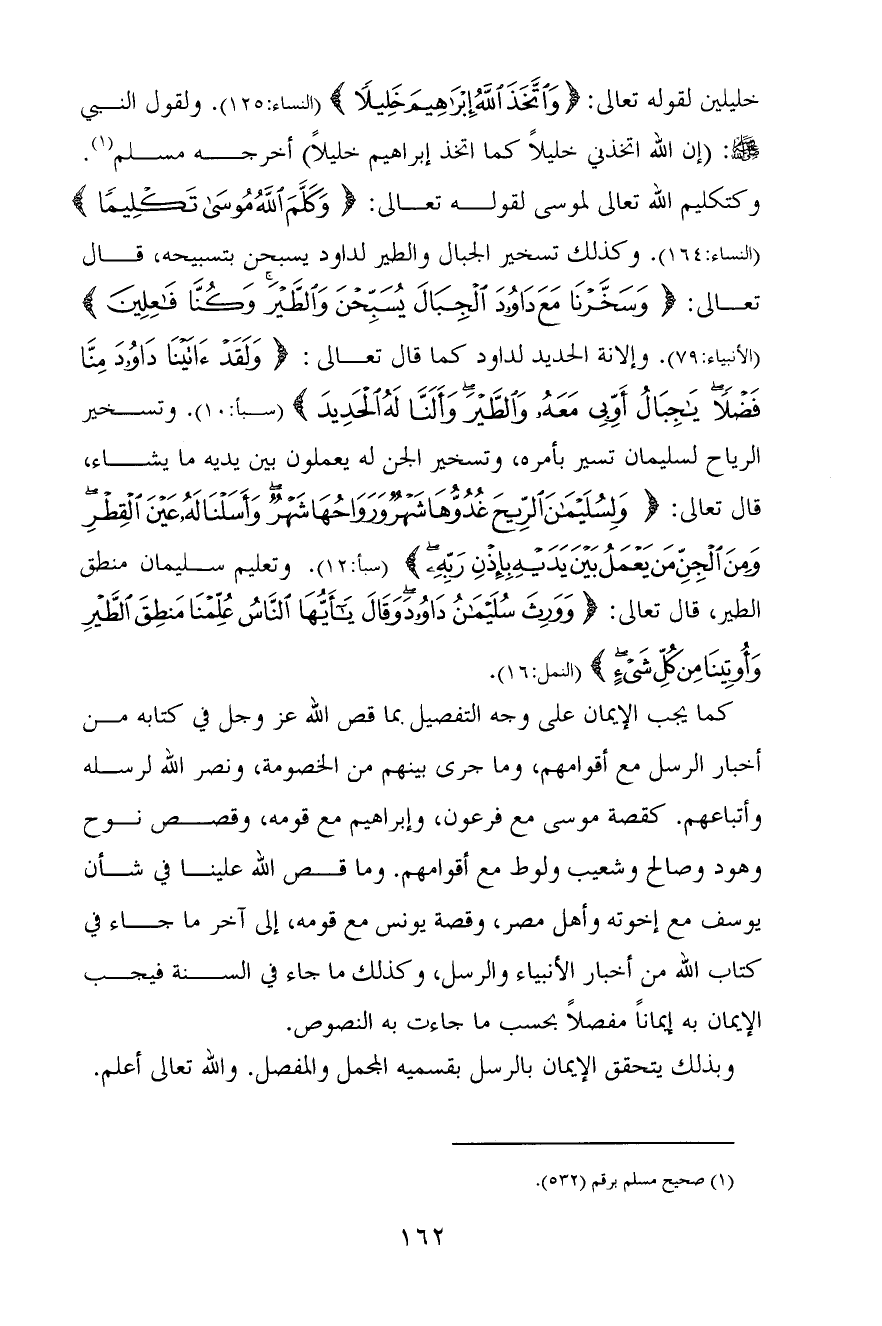 خليلين لقوله تعالى: ﴿ وَٱتَّخَذَ ٱللَّهُ إِبْرَٰهِيمَ خَلِيلًا ﴾ (النساء:١٢٥). ولقول النبي
ﷺ: (إن الله اتخذني خليلاً كما اتخذ إبراهيم خليلاً) أخرجه مسلم(١).
وكتكليم الله تعالى لموسى لقوله تعالى: ﴿ وَكَلَّمَ ٱللَّهُ مُوسَىٰ تَكْلِيمًا ﴾
(النساء:١٦٤). وكذلك تسخير الجبال والطير لداود يسبحن بتسبيحه، قال
تعالى: ﴿ وَسَخَّرْنَا مَعَ دَاوُۥدَ ٱلْجِبَالَ يُسَبِّحْنَ وَٱلطَّيْرَ ۚ وَكُنَّا فَٰعِلِينَ ﴾
(الأنبياء:٧٩). وإلانة الحديد لداود كما قال تعالى : ﴿ وَلَقَدْ ءَاتَيْنَا دَاوُۥدَ مِنَّا
فَضْلًا ۖ يَٰجِبَالُ أَوِّبِى مَعَهُۥ وَٱلطَّيْرَ ۖ وَأَلَنَّا لَهُ ٱلْحَدِيدَ ﴾ (سبأ:١٠). وتسخير
الرياح لسليمان تسير بأمره، وتسخير الجن له يعملون بين يديه ما يشاء،
قال تعالى: ﴿ وَلِسُلَيْمَٰنَ ٱلرِّيحَ غُدُوُّهَا شَهْرٌ وَرَوَاحُهَا شَهْرٌ ۖ وَأَسَلْنَا لَهُۥ عَيْنَ ٱلْقِطْرِ ۖ
وَمِنَ ٱلْجِنِّ مَن يَعْمَلُ بَيْنَ يَدَيْهِ بِإِذْنِ رَبِّهِۦ ۖ ﴾ (سبأ:١٢). وتعليم سليمان منطق
الطير، قال تعالى: ﴿ وَوَرِثَ سُلَيْمَٰنُ دَاوُۥدَ ۖ وَقَالَ يَٰٓأَيُّهَا ٱلنَّاسُ عُلِّمْنَا مَنطِقَ ٱلطَّيْرِ
وَأُوتِينَا مِن كُلِّ شَىْءٍ ۖ ﴾ (النمل:١٦).
كما يجب الإيمان على وجه التفصيل بما قص الله عز وجل في كتابه من
أخبار الرسل مع أقوامهم، وما جرى بينهم من الخصومة، ونصر الله لرسله
وأتباعهم. كقصة موسى مع فرعون، وإبراهيم مع قومه، وقصص نوح
وهود وصالح وشعيب ولوط مع أقوامهم. وما قص الله علينا في شأن
يوسف مع إخوته وأهل مصر، وقصة يونس مع قومه، إلى آخر ما جاء في
كتاب الله من أخبار الأنبياء والرسل، وكذلك ما جاء في السنة فيجب
الإيمان به إيماناً مفصلاً بحسب ما جاءت به النصوص.
وبذلك يتحقق الإيمان بالرسل بقسميه المجمل والمفصل. والله تعالى أعلم.
(١) صحيح مسلم برقم (٥٣٢).
١٦٢